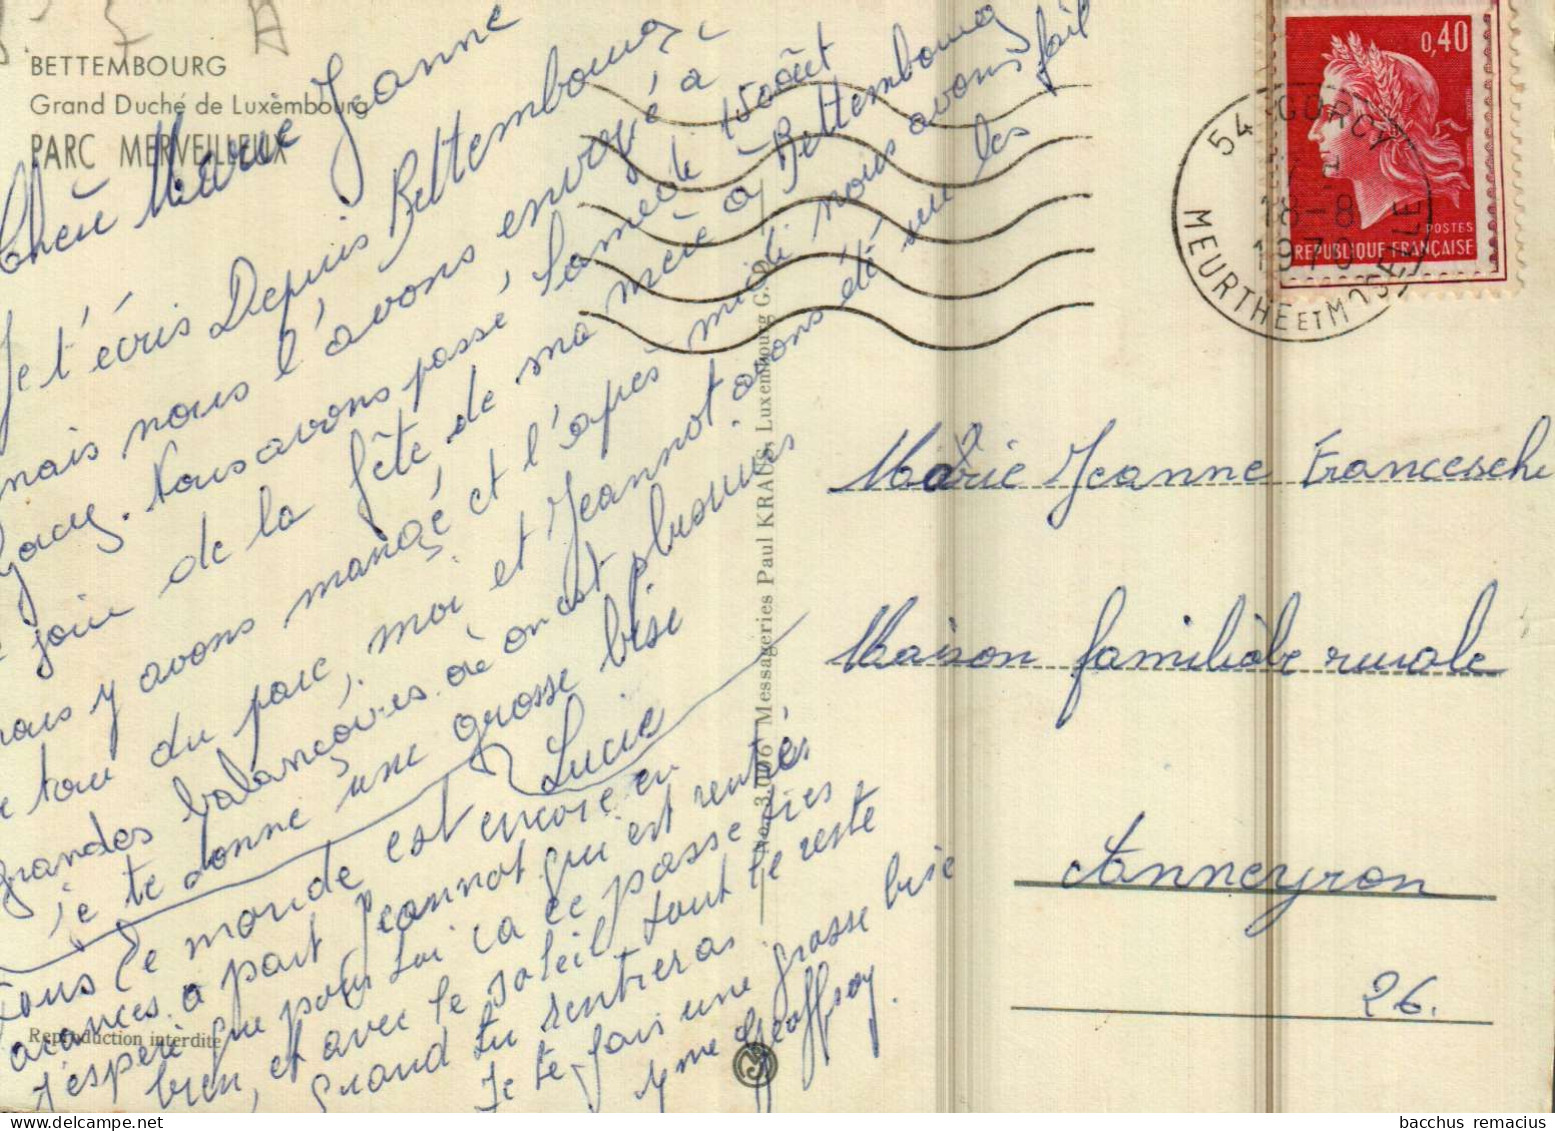 BETTEMBOURG
Grand Duché de Luxèmbourg
PARC MERVEILLEUX
Chère Marie Jeanne
Je t'écris Depuis Bettembourg,
mais nous l'avons envoyé à
Gorcy. Nous avons passé, Samedi 15 août
jour de la fête de ma mère à Bettembourg
nous y avons mangé et l'après midi nous avons fait
le tour du parc, moi et Jeannot avons été sur les
grandes balançoires où on est plusieurs
je te donne une grosse bise
Lucie
Tous le monde est encore en
vacances a part Jeannot qui est rentrés
J'espère que pour lui ca ce passe très
bien, et avec le soleil tout le reste
Quand tu rentieras
Je te fais une grosse bise
Mme Geoffroy.
Reproduction interdite
No. 3.006 Messageries Paul KRAUS, Luxembourg G. D.
0,40
POSTES
REPUBLIQUE FRANÇAISE
54 GORCY
18-8
1970
MEURTHE ET MOSELLE
Marie Jeanne Franceschi
Maison familiale rurale
Anneyron
26.
bacchus remacius